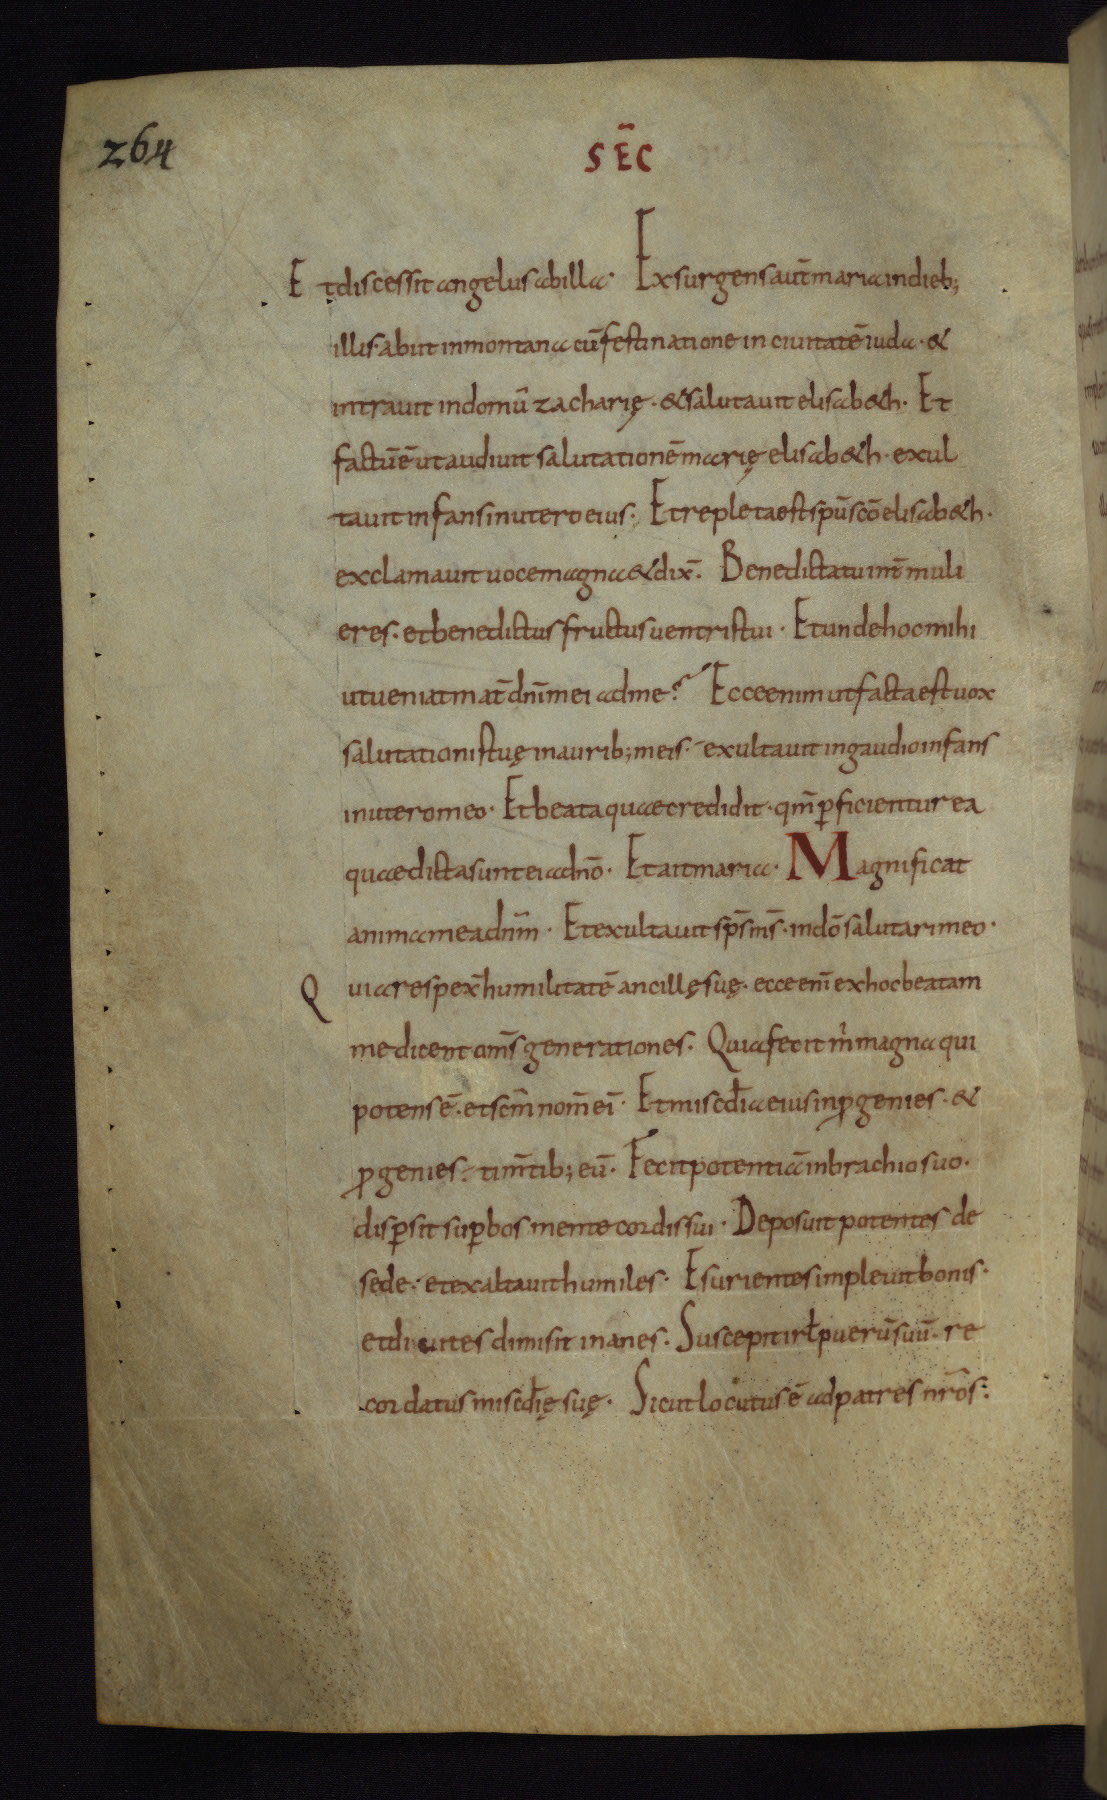 264
SĒC
Et discessit angelus ab illa· Exsurgens aut̄ maria in dieb;
illis· abiit in montana cū festinatione in ciuitatē iuda· &
intrauit in domū zacharię· & salutauit elisab&h· Et
factū ē ut audiuit salutationē marię elisab&h· exul
tauit infans in utero eius· Et repleta est sp̄u sc̄o elisab&h·
exclamauit uoce magna & dix̄· Benedicta tu int̄ muli
eres· et benedictus fructus uentris tui· Et unde hoc mihi
ut ueniat mat̄ dn̄i mei ad me? Ecce enim ut facta est uox
salutationis tuę in aurib; meis· exultauit in gaudio infans
in utero meo· Et beata quae credidit· qm̄ p̄ficientur ea
quae dicta sunt ei a dn̄o· Et ait maria· Magnificat
anima mea dn̄m· Et exultauit sp̄s m̄s· in dō salutari meo·
Quia respex̄ humilitatē ancillę suę· ecce enī ex hoc beatam
me dicent om̄s generationes· Quia fecit m̄ magna qui
potens ē· et sc̄m nom̄ ei· Et miscd̄ia eius in ꝓgenies· &
ꝓgenies· tim̄tib; eū· Fecit potentiā in brachio suo·
disp̄sit sup̄bos mente cordis sui· Deposuit potentes de
sede· et exaltauit humiles· Esurientes impleuit bonis·
et diuites dimisit inanes· Suscepit irł puerū suū· re
cordatus miscd̄ię suę· Sicut locutus ē ad patres nr̄os·